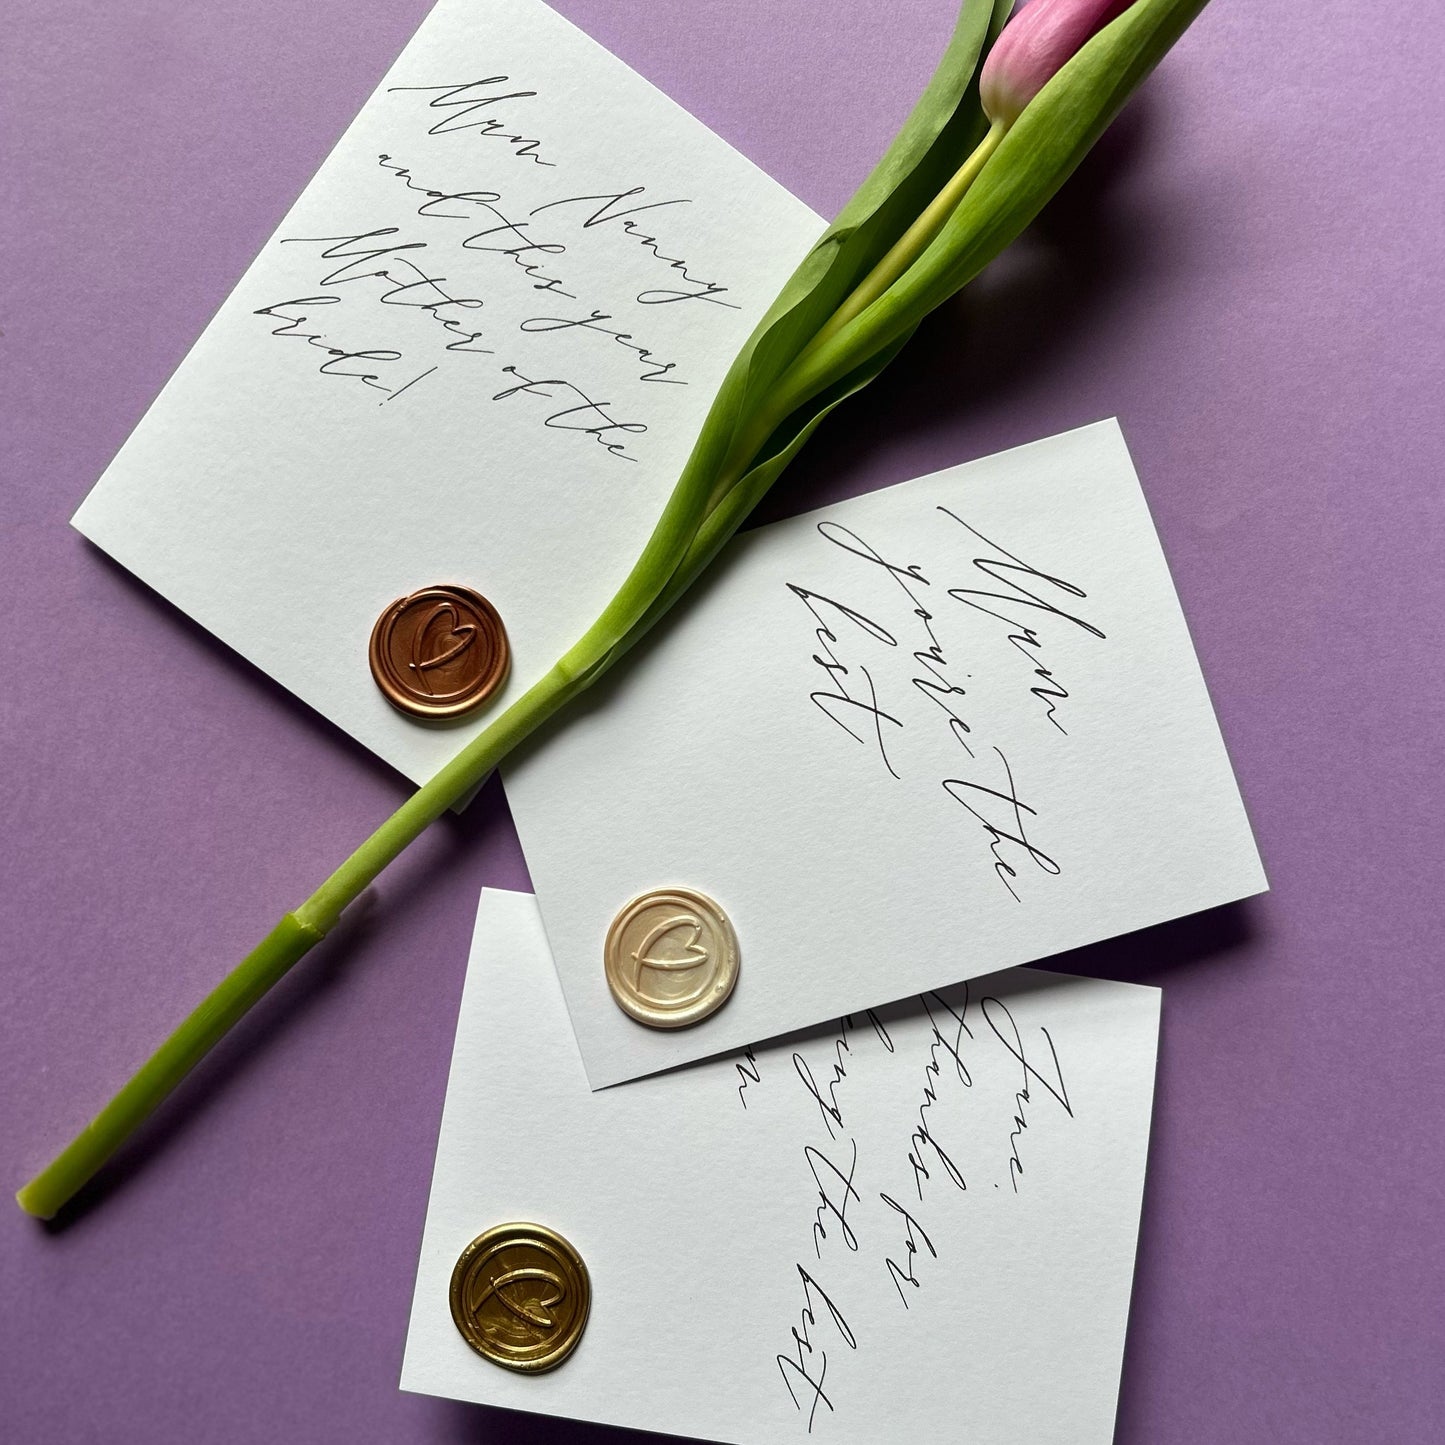 Mum Nanny
and this year
Mother of the
bride!
Mum
you're the
best
Jane,
thanks for
eing the best